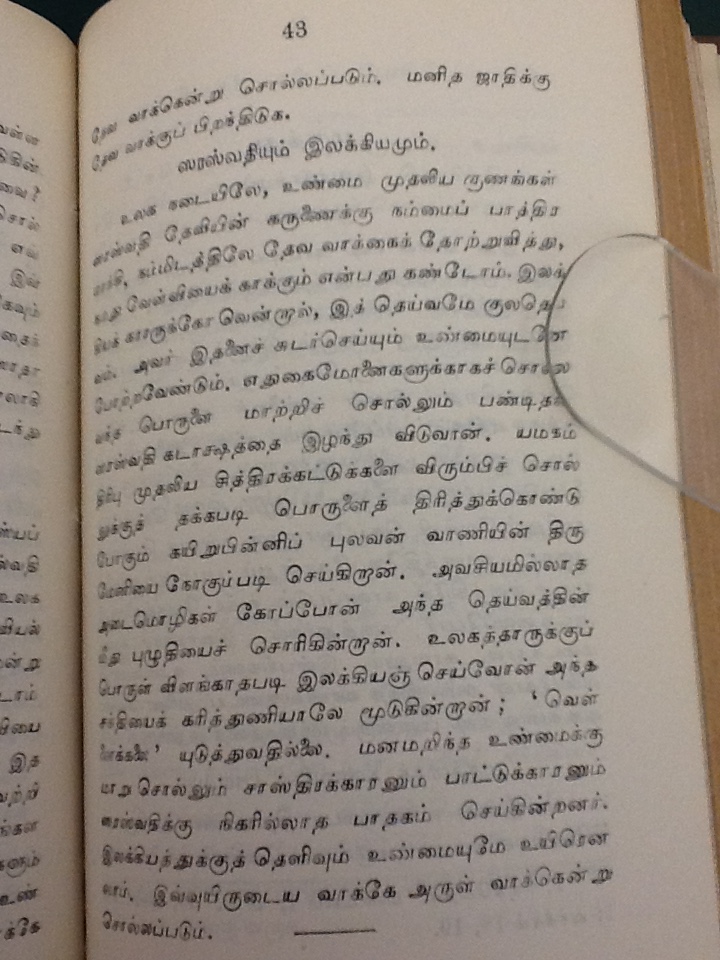 43
தேவ வாக்கென்று சொல்லப்படும். மனித ஜாதிக்கு
தேவ வாக்குப் பிறந்திடுக.
ஸரஸ்வதியும் இலக்கியமும்.
உலக நடையிலே, உண்மை முதலிய குணங்கள்
ஸரஸ்வதி தேவியின் கருணைக்கு நம்மைப் பாத்திர
மாக்கி, நம்மிடத்திலே தேவ வாக்கைத் தோற்றுவித்து,
நமது வேள்வியைக் காக்கும் என்பது கண்டோம். இலக்
கியக் காரருக்கோ வென்றால், இத் தெய்வமே குலதெய்
வம். அவர் இதனைச் சுடர்செய்யும் உண்மையுடனே
போற்றவேண்டும். எதுகைமோனைகளுக்காகச் சொல்ல
வந்த பொருளை மாற்றிச் சொல்லும் பண்டிதன்
ஸரஸ்வதி கடாக்ஷத்தை இழந்து விடுவான். யமகம்
திரிபு முதலிய சித்திரக்கட்டுக்களை விரும்பிச் சொல்
லுக்குத் தக்கபடி பொருளைத் திரித்துக்கொண்டு
போகும் கயிறுபின்னிப் புலவன் வாணியின் திரு
மேனியை நோகும்படி செய்கிறான். அவசியமில்லாத
அடைமொழிகள் கோப்போன் அந்த தெய்வத்தின்
மீது புழுதியைச் சொரிகின்றான். உலகத்தாருக்குப்
பொருள் விளங்காதபடி இலக்கியஞ் செய்வோன் அந்த
சக்தியைக் கரித்துணியாலே மூடுகின்றான்; ‘வெள்
ளைக்கலை’ யுடுத்துவதில்லை. மனமறிந்த உண்மைக்கு
மாறு சொல்லும் சாஸ்திரக்காரனும் பாட்டுக்காரனும்
ஸரஸ்வதிக்கு நிகரில்லாத பாதகம் செய்கின்றனர்.
இலக்கியத்துக்குத் தெளிவும் உண்மையுமே உயிரென
லாம். இவ்வுயிருடைய வாக்கே அருள் வாக்கென்று
சொல்லப்படும்.